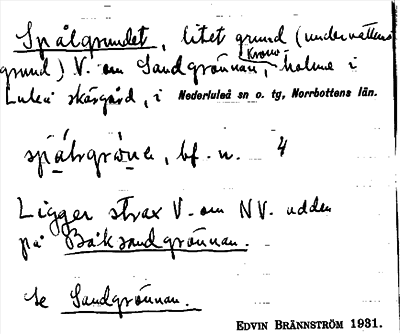 Spålgrundet, litet grund (undervattens
grund) V. om Sandgrönnan, Kronö holme i
Luleå skärgård, i Nederluleå sn o. tg, Norrbottens län.
bf. n. 4
Ligger strax V. om NV. udden
på Båksandgrönnan.
Se Sandgrönnan.
EDVIN BRÄNNSTRÖM 1931.